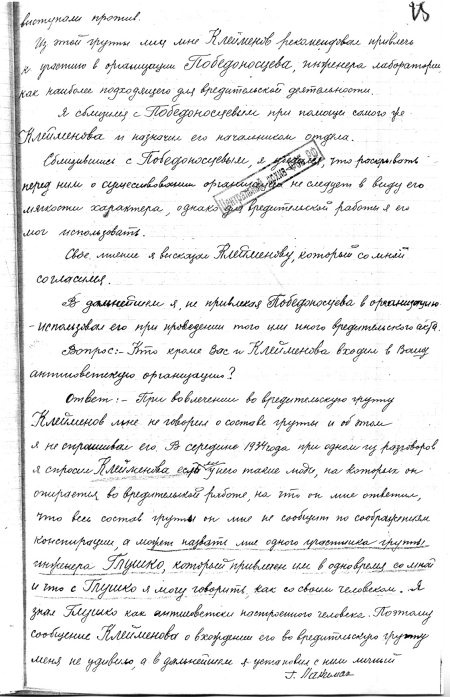 выступали против.
Из этой группы лиц мне Клейменов рекомендовал привлечь
к участию в организации Победоносцева, инженера лаборатории
как наиболее подходящего для вредительской деятельности.
Я сблизился с Победоносцевым при помощи самого же
Клейменова и назначил его начальником отдела.
Сблизившись с Победоносцевым, я убедился, что раскрывать
перед ним о существовании организации не следует в виду его
мягкости характера, однако для вредительской работы я его
мог использовать.
Свое мнение я высказал Клейменову, который со мной
согласился.
В дальнейшем я, не привлекая Победоносцева в организацию
-использовал его при проведении того или иного вредительского акта.
Вопрос:- Кто кроме Вас и Клейменова входил в Вашу
антисоветскую организацию?
Ответ:- При вовлечении во вредительскую группу
Клейменов мне не говорил о составе группы и об этом
я не спрашивал его. В середине 1934 года при одном из разговоров
я спросил Клейменова есть ли у него такие люди, на которых он
опирается во вредительской работе, на что он мне ответил,
что весь состав группы он мне не сообщит по соображениям
конспирации а может назвать мне одного участника группы,
инженера Глушко, который привлечен им в одно время со мной
и что с Глушко я могу говорить, как со своим человеком. Я
знал Глушко как антисоветски настроенного человека. Поэтому
сообщение Клейменова о вхождении его во вредительскую группу
меня не удивило, а в дальнейшем я установил с ним личный
Г. Лангемак